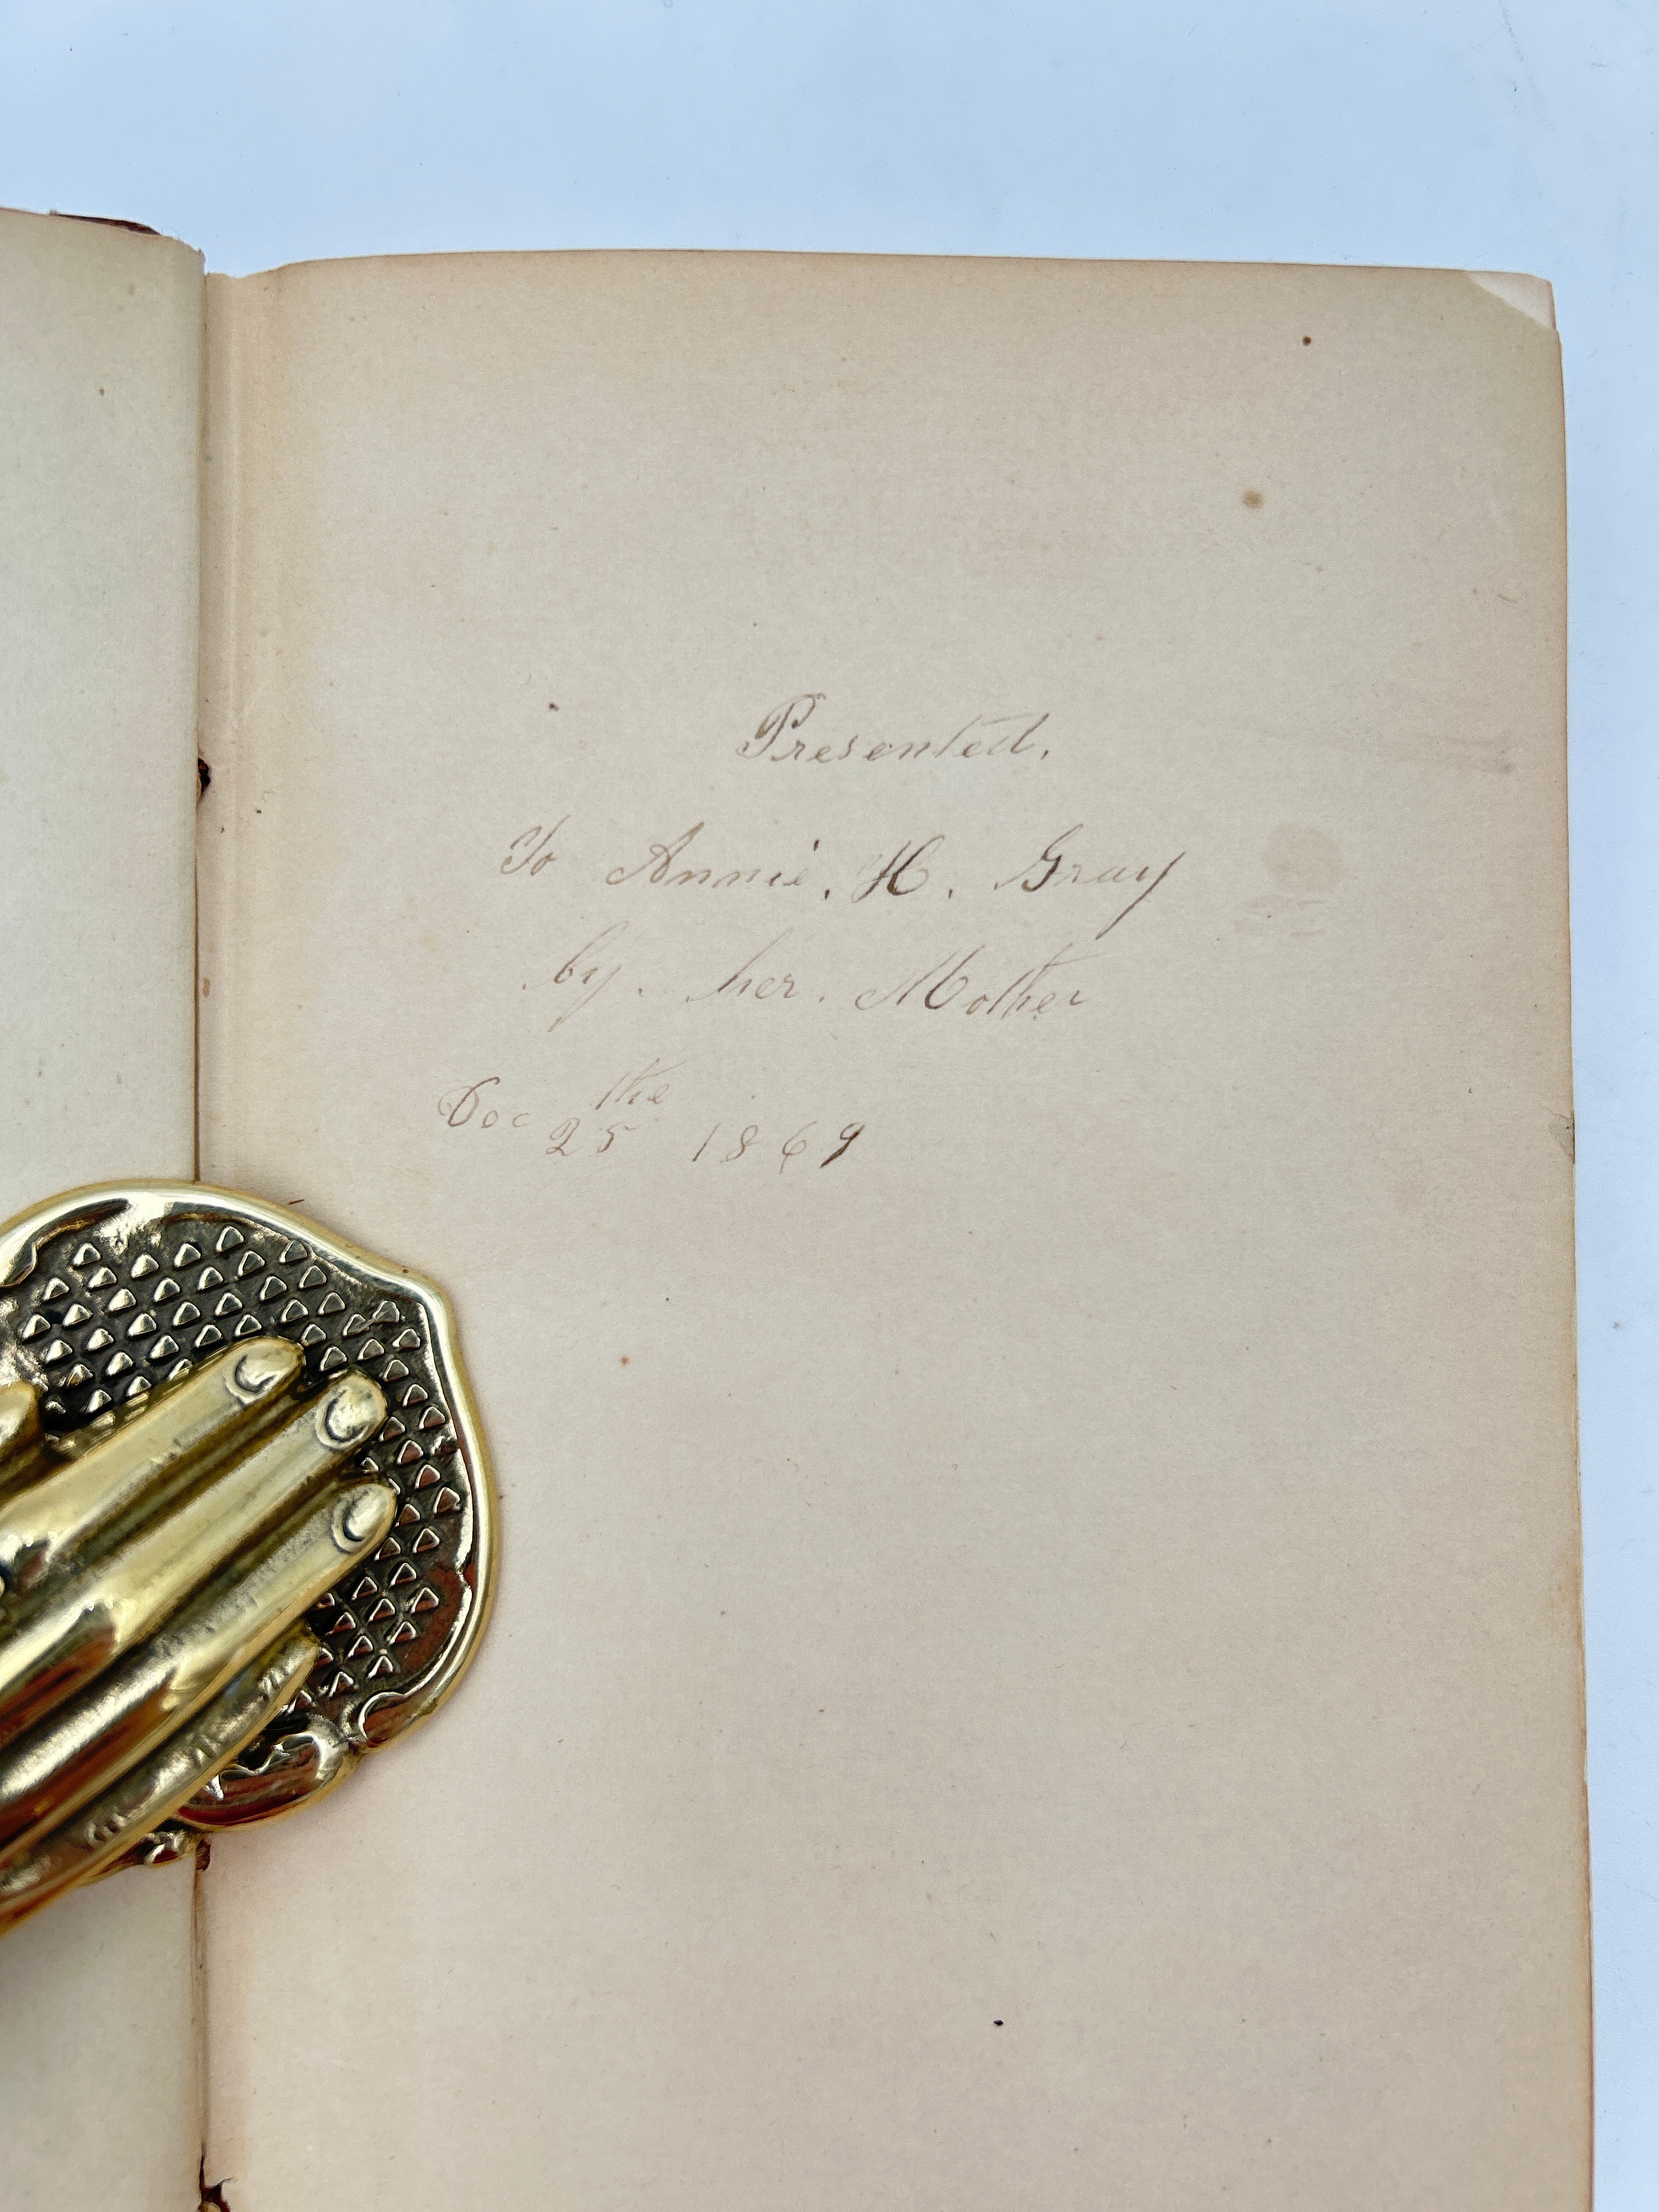 Presented.
To Annie. H. Gray
by. her. Mother
Dec the
25 1869